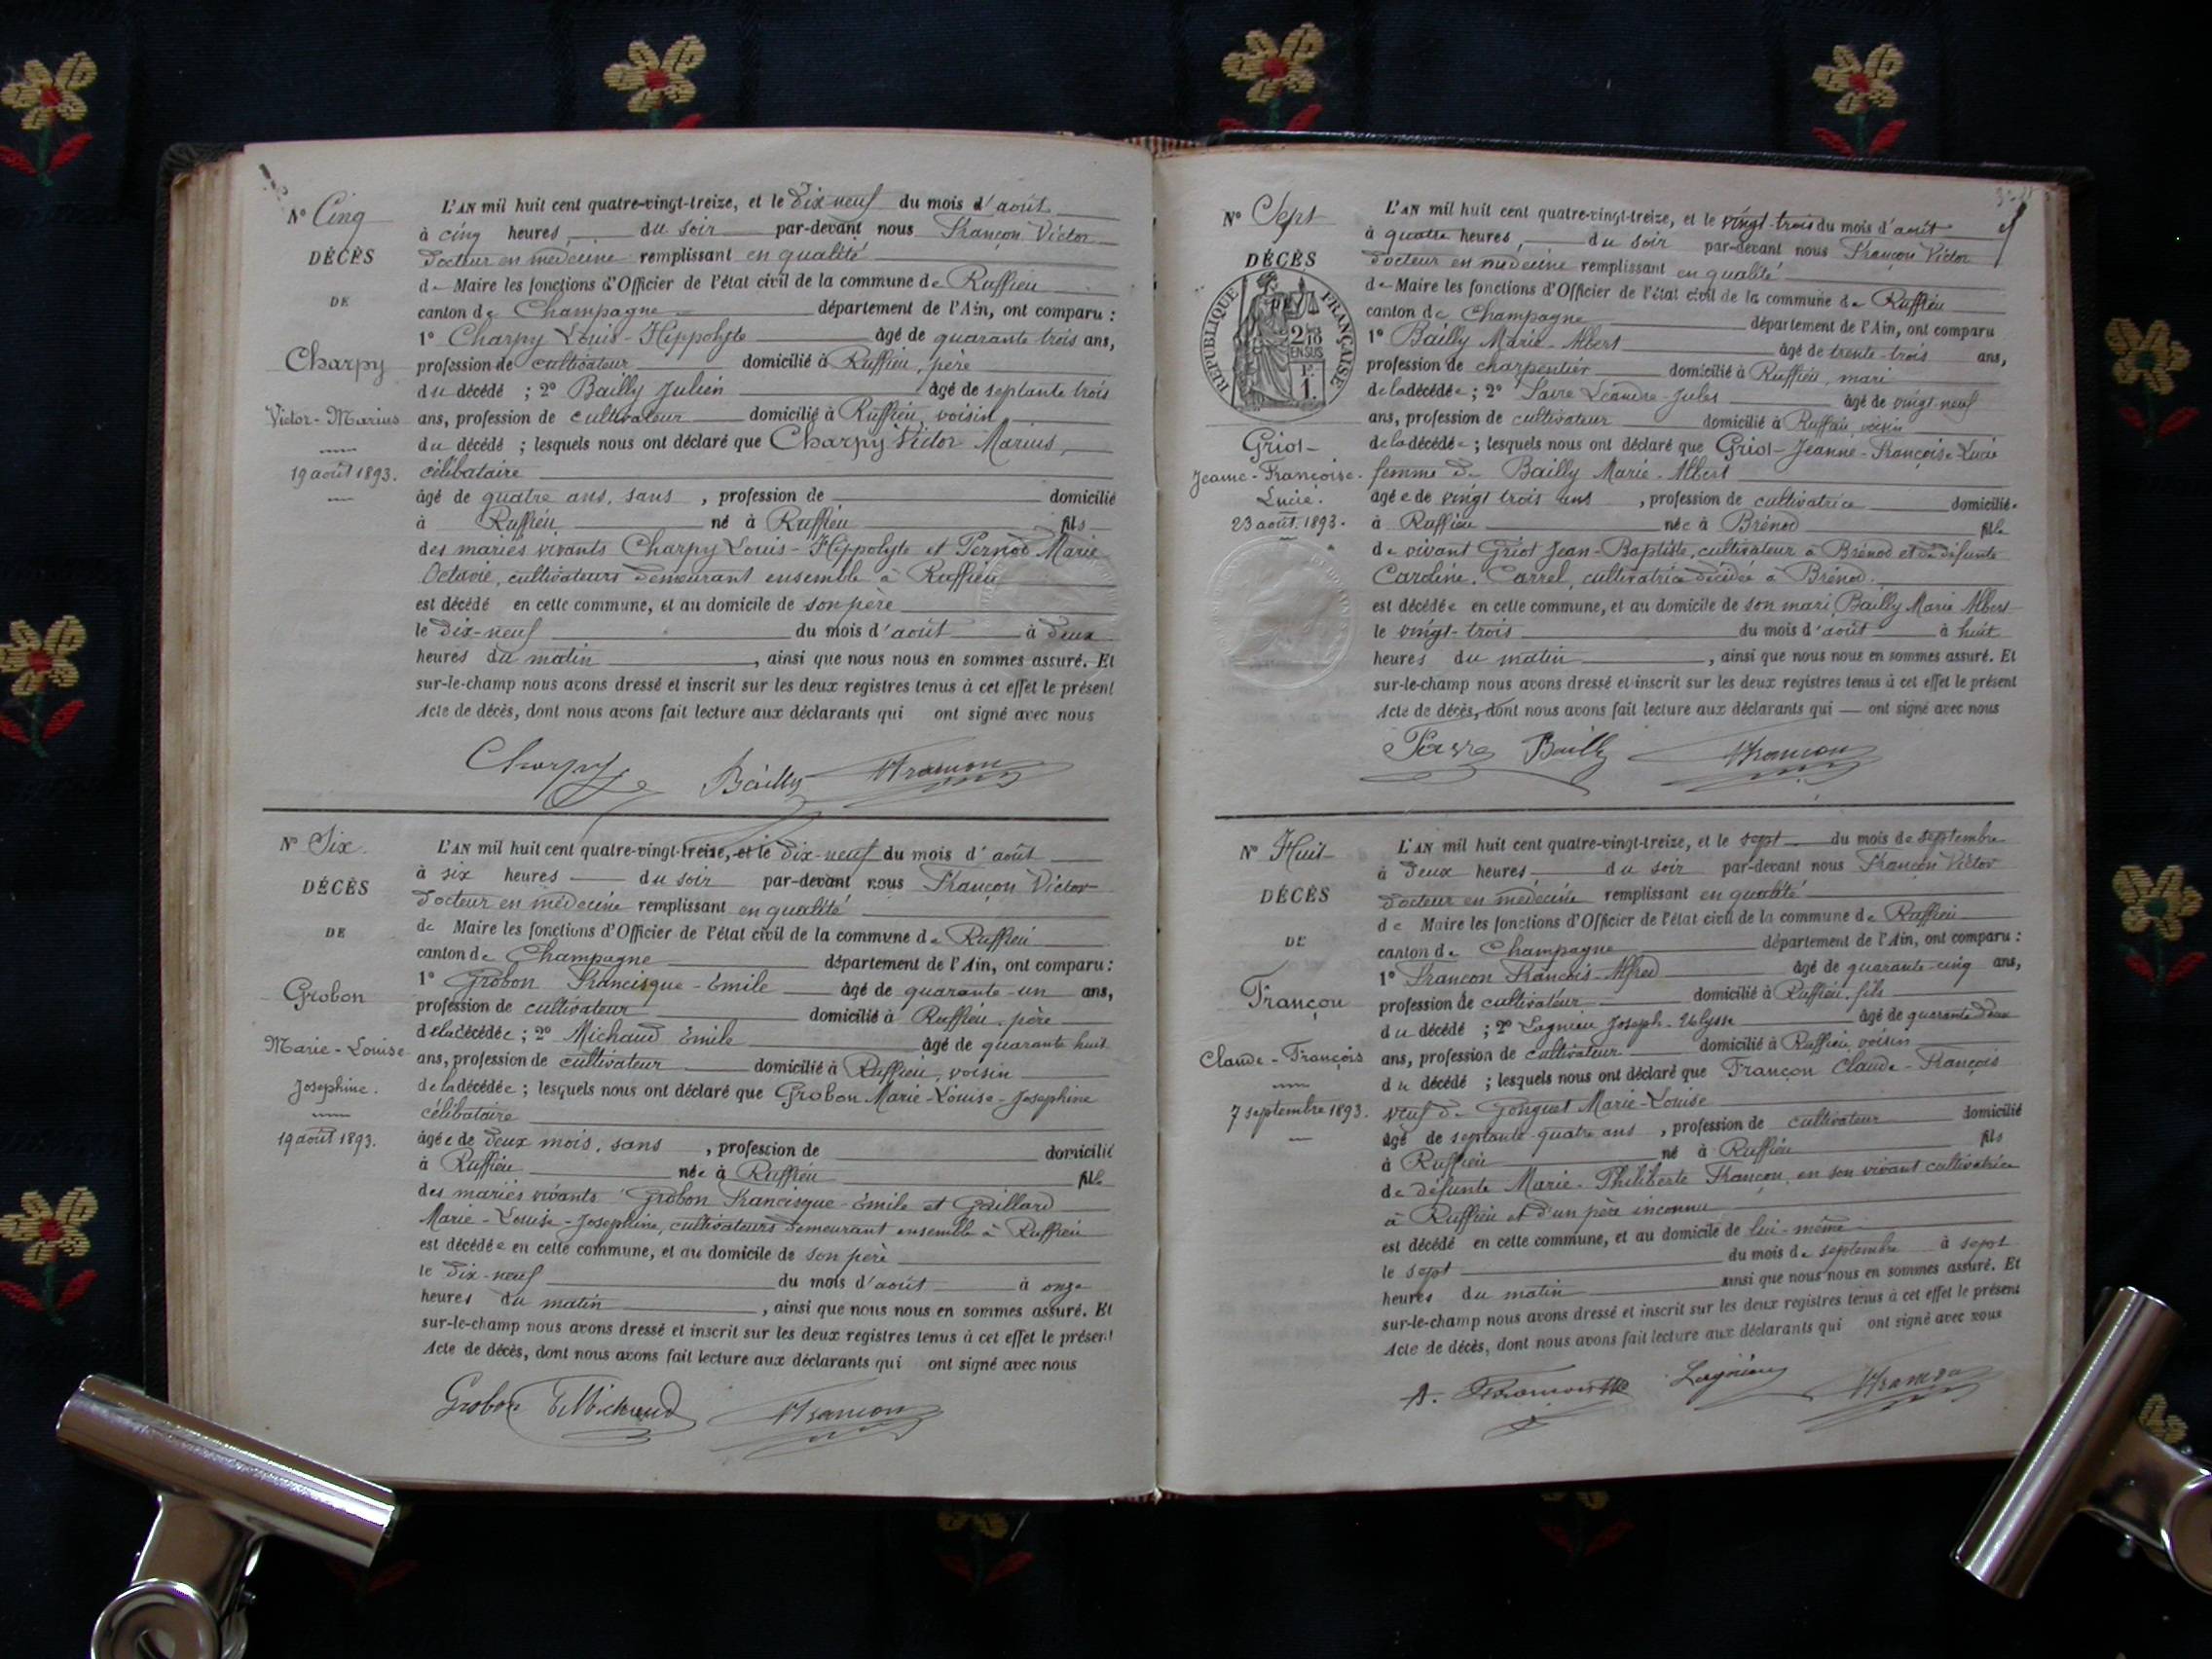 N° Cinq
DÉCÈS
DE
Charpy
Victor-Marius
19 août 1893.
L'AN mil huit cent quatre-vingt-treize, et le dix-neuf du mois d'août
à cinq heures, du soir par-devant nous Françon Victor
docteur en médecine remplissant en qualité
de Maire les fonctions d'Officier de l'état civil de la commune de Ruffieu
canton de Champagne département de l'Ain, ont comparu :
1° Charpy Louis-Hippolyte âgé de quarante trois ans,
profession de cultivateur domicilié à Ruffieu, père
du décédé ; 2° Bailly Julien âgé de septante trois
ans, profession de cultivateur domicilié à Ruffieu, voisin
du décédé ; lesquels nous ont déclaré que Charpy Victor Marius,
célibataire
âgé de quatre ans, sans , profession de domicilié
à Ruffieu né à Ruffieu fils
des mariés vivants Charpy Louis-Hippolyte et Pernod Marie
Octavie, cultivateurs demeurant ensemble à Ruffieu
est décédé en cette commune, et au domicile de son père
le dix-neuf du mois d'août à deux
heures du matin , ainsi que nous nous en sommes assuré. Et
sur-le-champ nous avons dressé et inscrit sur les deux registres tenus à cet effet le présent
Acte de décès, dont nous avons fait lecture aux déclarants qui ont signé avec nous
Charpy Bailly VFrançon
N° Six.
DÉCÈS
DE
Grobon
Marie-Louise
Josephine.
19 août 1893.
L'AN mil huit cent quatre-vingt-treize, et le dix-neuf du mois d'août
à six heures du soir par-devant nous Françon Victor
docteur en médecine remplissant en qualité
de Maire les fonctions d'Officier de l'état civil de la commune de Ruffieu
canton de Champagne département de l'Ain, ont comparu :
1° Grobon Francisque-Emile âgé de quarante-un ans,
profession de cultivateur domicilié à Ruffieu, père
de la décédée ; 2° Michaud Emile âgé de quarante huit
ans, profession de cultivateur domicilié à Ruffieu, voisin
de la décédée ; lesquels nous ont déclaré que Grobon Marie-Louise-Josephine
célibataire
âgée de deux mois, sans , profession de domicilié
à Ruffieu née à Ruffieu fille
des mariés vivants Grobon Francisque-Emile et Gaillard
Marie-Louise-Josephine, cultivateurs demeurant ensemble à Ruffieu
est décédée en cette commune, et au domicile de son père
le dix-neuf du mois d'août à onze
heures du matin , ainsi que nous nous en sommes assuré. Et
sur-le-champ nous avons dressé et inscrit sur les deux registres tenus à cet effet le présent
Acte de décès, dont nous avons fait lecture aux déclarants qui ont signé avec nous
Grobon E Michaud VFrançon
N° Sept
DÉCÈS
DE
RÉPUBLIQUE FRANÇAISE
2/10 EN SUS
1.
Griot
Jeanne-Françoise-
Lucie.
23 août 1893.
L'AN mil huit cent quatre-vingt-treize, et le vingt-trois du mois d'août
à quatre heures, du soir par-devant nous Françon Victor
docteur en médecine remplissant en qualité
de Maire les fonctions d'Officier de l'état civil de la commune de Ruffieu
canton de Champagne département de l'Ain, ont comparu
1° Bailly Marie-Albert âgé de trente-trois ans,
profession de charpentier domicilié à Ruffieu, mari
de la décédée ; 2° Léandre-Jules âgé de vingt-neuf
ans, profession de cultivateur domicilié à Ruffieu voisin
de la décédée ; lesquels nous ont déclaré que Griot Jeanne-Françoise-Lucie
femme de Bailly Marie-Albert
âgée de vingt trois ans , profession de cultivatrice domiciliée
à Ruffieu née à Brénod fille
de vivant Griot Jean-Baptiste, cultivateur à Brénod et de défunte
Caroline Carrel, cultivatrice décédée à Brénod.
est décédée en cette commune, et au domicile de son mari Bailly Marie Albert
le vingt-trois du mois d'août à huit
heures du matin , ainsi que nous nous en sommes assuré. Et
sur-le-champ nous avons dressé et inscrit sur les deux registres tenus à cet effet le présent
Acte de décès, dont nous avons fait lecture aux déclarants qui ont signé avec nous
Bailly VFrançon
N° Huit
DÉCÈS
DE
Françon
Claude-François
7 septembre 1893.
L'AN mil huit cent quatre-vingt-treize, et le sept du mois de septembre
à deux heures, du soir par-devant nous Françon Victor
docteur en médecine remplissant en qualité
de Maire les fonctions d'Officier de l'état civil de la commune de Ruffieu
canton de Champagne département de l'Ain, ont comparu :
1° Françon François-Alfred âgé de quarante-cinq ans,
profession de cultivateur domicilié à Ruffieu, fils
du décédé ; 2° Lagnieu Joseph-Ulysse âgé de quarante deux
ans, profession de cultivateur domicilié à Ruffieu, voisin
du décédé ; lesquels nous ont déclaré que Françon Claude-François
veuf de Gonguet Marie-Louise
âgé de septante-quatre ans , profession de cultivateur domicilié
à Ruffieu né à Ruffieu fils
de défunte Marie-Philiberte Françon, en son vivant cultivatrice
à Ruffieu et d'un père inconnu
est décédé en cette commune, et au domicile de lui-même
le sept du mois de septembre à sept
heures du matin ainsi que nous nous en sommes assuré. Et
sur-le-champ nous avons dressé et inscrit sur les deux registres tenus à cet effet le présent
Acte de décès, dont nous avons fait lecture aux déclarants qui ont signé avec nous
A. Françon Lagnieu VFrançon